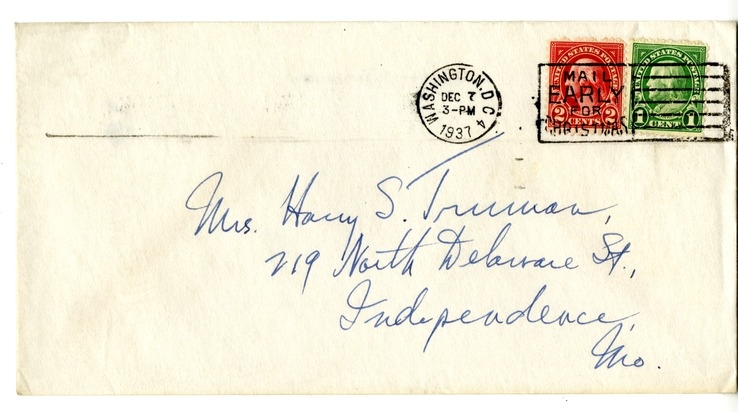 WASHINGTON, D.C. 4
DEC 7
3-PM
1937
UNITED STATES POSTAGE
2 CENTS 2
UNITED STATES POSTAGE
1 CENT 1
MAIL
EARLY
FOR
CHRISTMAS
Mrs. Harry S. Truman,
219 North Delaware St.,
Independence,
Mo.